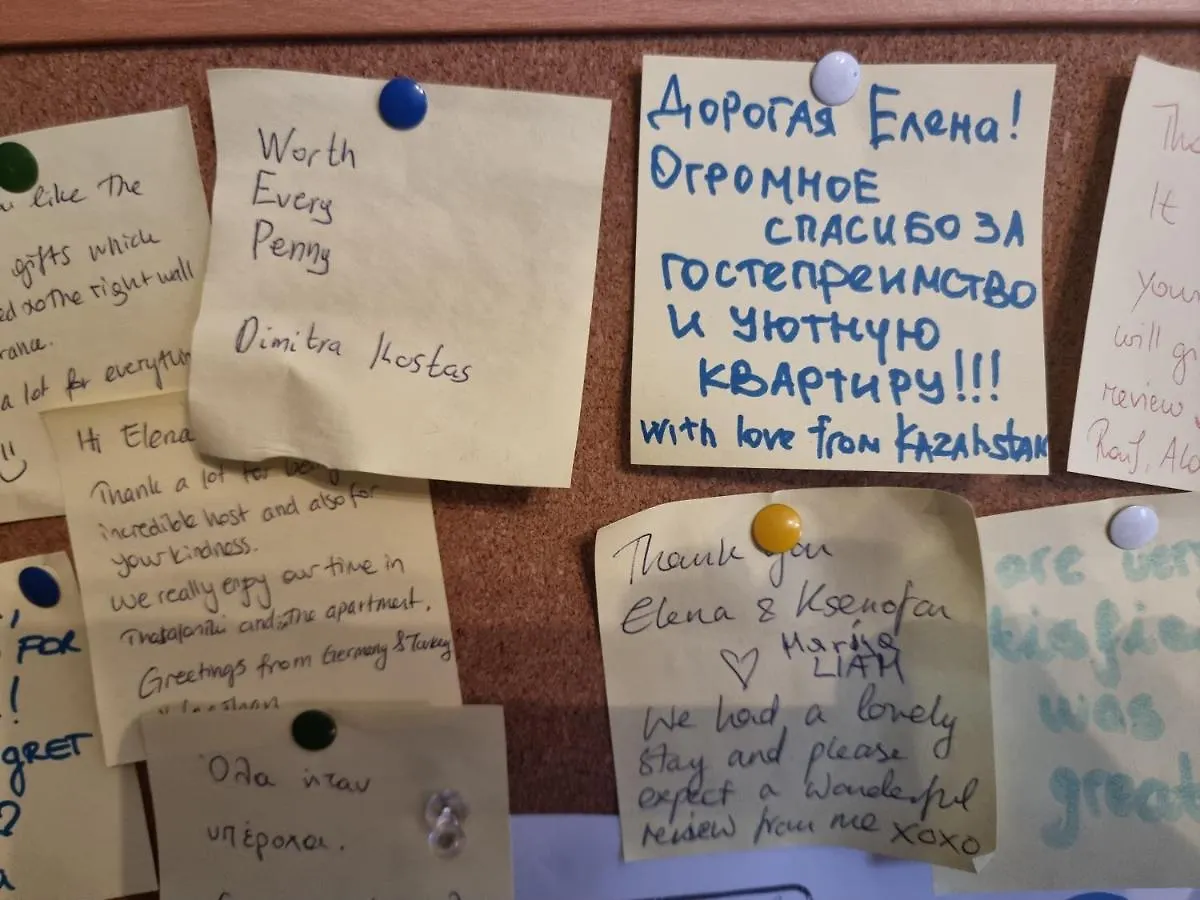 like the
gifts which
to the right wall
a lot for everything
Worth
Every
Penny
Dimitra Kostas
Дорогая Елена!
Огромное
спасибо за
гостепреимство
и уютную
квартиру!!!
with love from KAZAhstan
It
your
will
review
Hi Elena
Thank a lot for being
incredible host and also for
your kindness.
we really enjoy our time in
and the apartment.
Greetings from Germany & Turkey
FOR
!
GRET
Όλα ήταν
υπέροχα.
Thank you
Elena & Ksenofon
Marina
LIAM
We had a lovely
stay and please
expect a wonderful
review from me xoxo
are very
was
great